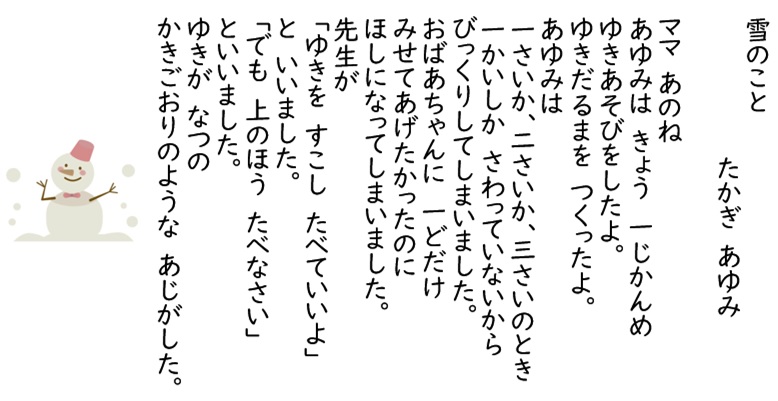 雪のこと
たかぎ あゆみ
ママ あのね
あゆみは きょう 一じかんめ
ゆきあそびをしたよ。
ゆきだるまを つくったよ。
あゆみは
一さいか、二さいか、三さいのとき
一かいしか さわっていないから
びっくりしてしまいました。
おばあちゃんに 一どだけ
みせてあげたかったのに
ほしになってしまいました。
先生が
「ゆきを すこし たべていいよ」
と いいました。
「でも 上のほう たべなさい」
といいました。
ゆきが なつの
かきごおりのような あじがした。